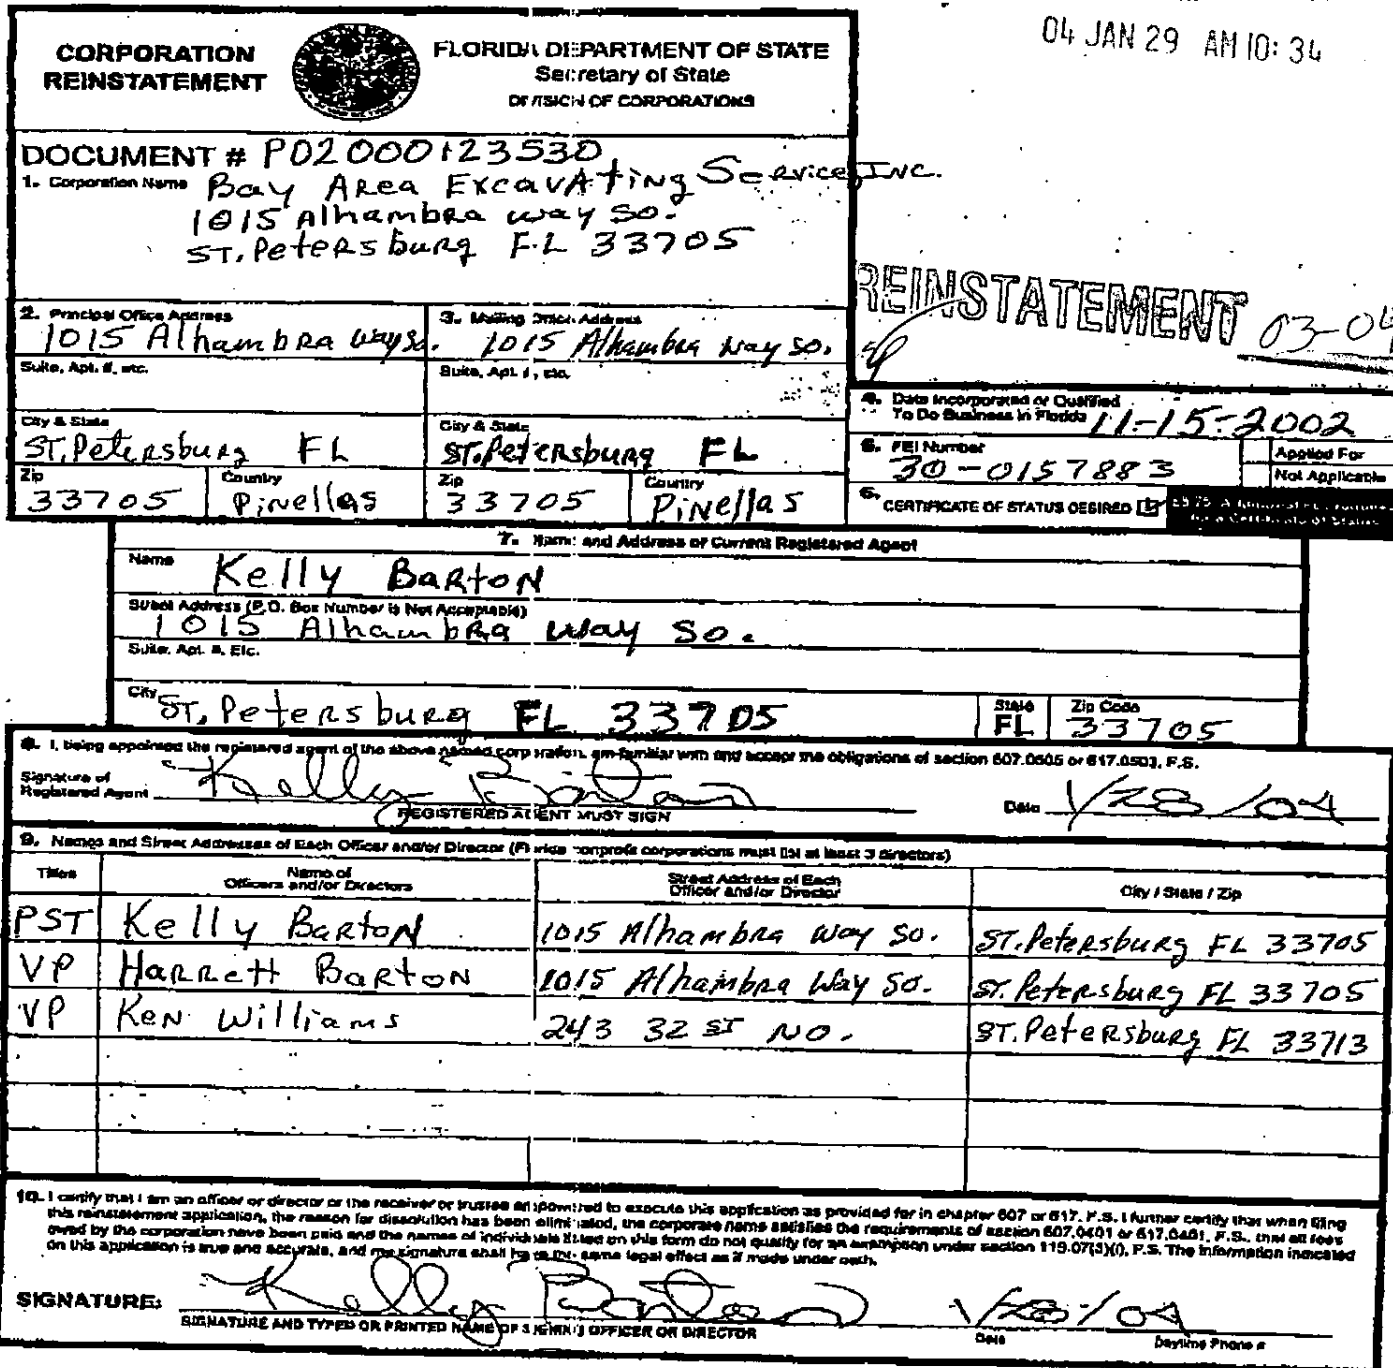 04 JAN 29 AM 10:34
CORPORATION
REINSTATEMENT
FLORIDA DEPARTMENT OF STATE
Secretary of State
DIVISION OF CORPORATIONS
DOCUMENT # P02000123530
1. Corporation Name Bay Area Excavating Service, Inc.
1015 Alhambra Way So.
ST. Petersburg FL 33705
REINSTATEMENT 03-04
2. Principal Office Address
1015 Alhambra Way So.
3. Mailing Office Address
1015 Alhambra Way So.
Suite, Apt. #, etc.
Suite, Apt. #, etc.
City & State
ST. Petersburg FL
City & State
ST. Petersburg FL
Zip
33705
Country
Pinellas
Zip
33705
Country
Pinellas
4. Date Incorporated or Qualified
To Do Business in Florida 11-15-2002
5. FEI Number
30-0157883
Applied For
Not Applicable
6. CERTIFICATE OF STATUS DESIRED
for a Certificate of Status
7. Name and Address of Current Registered Agent
Name Kelly Barton
Street Address (P.O. Box Number is Not Acceptable)
1015 Alhambra Way So.
Suite, Apt. #, Etc.
City ST. Petersburg FL 33705
State
FL
Zip Code
33705
8. I, being appointed the registered agent of the above named corporation, am familiar with and accept the obligations of section 607.0505 or 617.0503, F.S.
Signature of
Registered Agent Kelly Barton
REGISTERED AGENT MUST SIGN
Date 1/28/04
9. Names and Street Addresses of Each Officer and/or Director (Florida nonprofit corporations must list at least 3 directors)
Titles
Name of
Officers and/or Directors
Street Address of Each
Officer and/or Director
City / State / Zip
PST Kelly Barton 1015 Alhambra Way So. ST. Petersburg FL 33705
VP Harrett Barton 1015 Alhambra Way So. ST. Petersburg FL 33705
VP Ken Williams 243 32 ST NO. ST. Petersburg FL 33713
10. I certify that I am an officer or director or the receiver or trustee empowered to execute this application as provided for in chapter 607 or 617, F.S. I further certify that when filing
this reinstatement application, the reason for dissolution has been eliminated, the corporate name satisfies the requirements of section 607.0401 or 617.0401, F.S., that all fees
owed by the corporation have been paid and the names of individuals listed on this form do not qualify for an exemption under section 119.07(3)(i), F.S. The information indicated
on this application is true and accurate, and my signature shall have the same legal effect as if made under oath.
SIGNATURE: Kelly Barton 1/28/04
SIGNATURE AND TYPED OR PRINTED NAME OF SIGNING OFFICER OR DIRECTOR
Date
Daytime Phone #